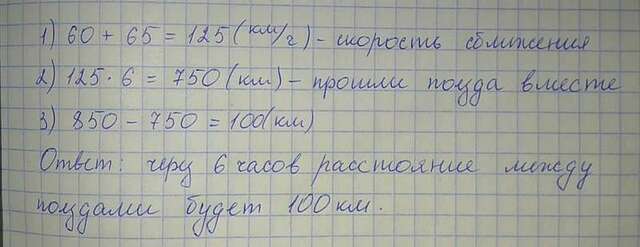 1) 60 + 65 = 125 (км/г) - скорость сближения
2) 125 · 6 = 750 (км) - прошли поезда вместе
3) 850 - 750 = 100 (км)
Ответ: через 6 часов расстояние между
поездами будет 100 км.